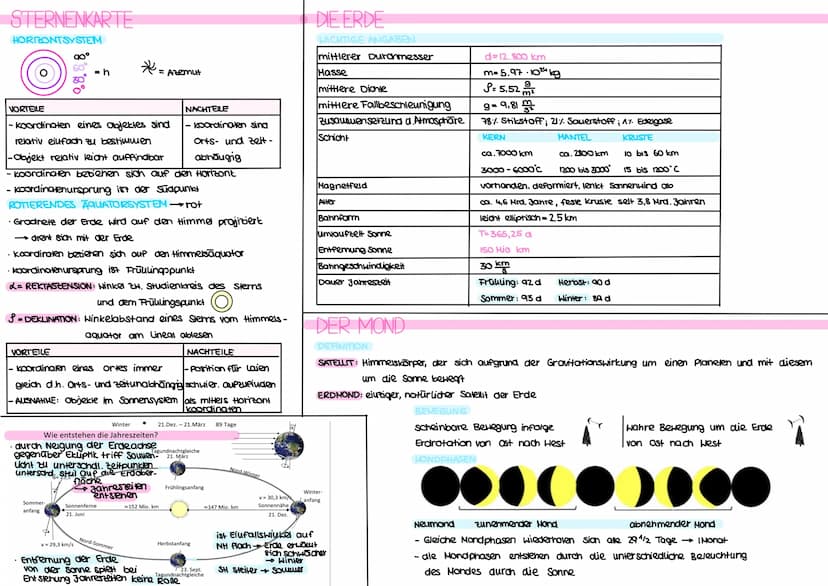 STERNENKARTE
HORIZONTSYSTEM
90°
60°
30°
0°
= h
= Azimut
VORTEILE
NACHTEILE
- Koordinaten eines Objektes sind
relativ einfach zu bestimmen
- Objekt relativ leicht auffindbar
- Koordinaten sind
Orts- und Zeit-
abhängig
- Koordinaten beziehen sich auf den Horizont
- Koordinatenursprung ist der Südpunkt
ROTIERENDES ÄQUATORSYSTEM → rot
· Gradnetz der Erde wird auf den Himmel projiziert
→ dreht sich mit der Erde
· Koordinaten beziehen sich auf den Himmelsäquator
· Koordinatenursprung ist Frühlingspunkt
α = REKTASTENSION: Winkel zw. Stundenkreis des Sterns
und dem Frühlingspunkt
= DEKLINATION: Winkelabstand eines Sterns vom Himmels-
äquator am Lineal ablesen
VORTEILE
NACHTEILE
- Koordinaten eines Ortes immer
gleich d.h. Orts- und Zeitunabhängig
- AUSNAHME: Objekte im Sonnensystem
- Position für Laien
schwier. aufzufinden
als mittels Horizont
koordinaten
Winter 21.Dez. - 21.März 89 Tage
Wie entstehen die Jahreszeiten?
· durch Neigung der Erdachse
gegenüber Ekliptik triff Sonnen-
licht zu unterschdl. Zeitpunkten
auf die Erdober-
fläche
→ Jahreszeiten
entstehen
Tagundnachtgleiche
21. März
Nord-Winter
Frühlingsanfang
v = 30,3 km/s
Winter-
anfang
Sommer-
anfang
Sonnenferne
21. Juni
≈152 Mio. km
≈147 Mio. km
Sonnennähe
21. Dez.
Nord-Sommer
v = 29,3 km/s
Herbstanfang
23. Sept.
Tagundnachtgleiche
· Entfernung der Erde
von der Sonne spielt bei
Entstehung Jahreszeiten keine Rolle
ist Einfallswinkel auf
NH flach → Erde erwärmt
sich schwächer
→ Winter
SH steiler → Sommer
DIE ERDE
WICHTIGE ANGABEN
mittlerer Durchmesser d = 12.800 km
Masse m = 5.97 · 10²⁴ kg
mittlere Dichte = 5.52
mittlere Fallbeschleunigung g = 9.81 m/s²
Zusammensetzung d. Atmosphäre 78% Stikstoff; 21% Sauerstoff; 1% Edelgase
Schicht KERN MANTEL KRUSTE
ca. 7000 km ca. 2800 km 10 bis 60 km
3000 - 6000°C 1200 bis 3000° 15 bis 1200°C
Magnetfeld vorhanden, deformiert, lenkt Sonnenwind ab
Alter ca. 4,6 Mrd. Jahre, feste Kruste seit 3,8 Mrd. Jahren
Bahnform leicht elliptisch = 2.5 km
Umlaufzeit Sonne T = 365,25 d
Entfernung Sonne 150 Mio km
Bahngeschwindigkeit 30 km/s
Dauer Jahreszeit Frühling: 92 d Herbst: 90 d
Sommer: 93 d Winter: 89 d
DER MOND
DEFINITION
SATELLIT: Himmelskörper, der sich aufgrund der Gravitationswirkung um einen Planeten und mit diesem
um die Sonne bewegt
ERDMOND: einziger, natürlicher Satellit der Erde
BEWEGUNG
scheinbare Bewegung infolge
Erdrotation von Ost nach West
Wahre Bewegung um die Erde
von Ost nach West
MONDPHASEN
Neumond zunehmender Mond abnehmender Mond
- Gleiche Mondphasen wiederholen sich alle 29 1/2 Tage → 1 Monat
- die Mondphasen entstehen durch die unterschiedliche Beleuchtung
des Mondes durch die Sonne